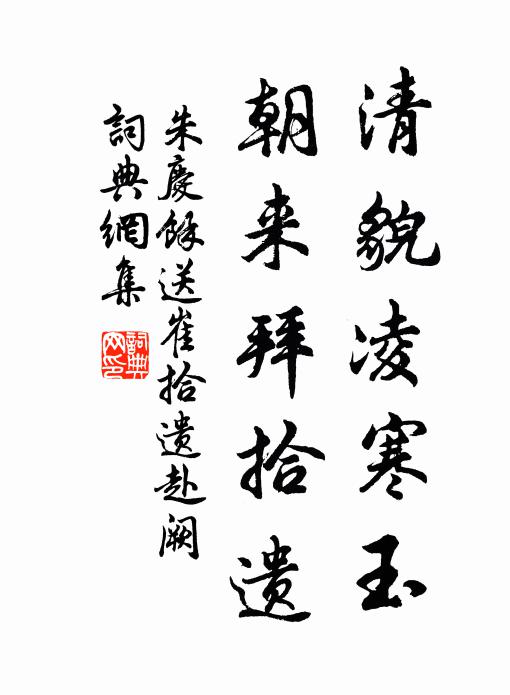 清貌凌寒玉
朝来拜拾遗
朱慶餘送崔拾遗赴阙
詞典網集
詞典网印